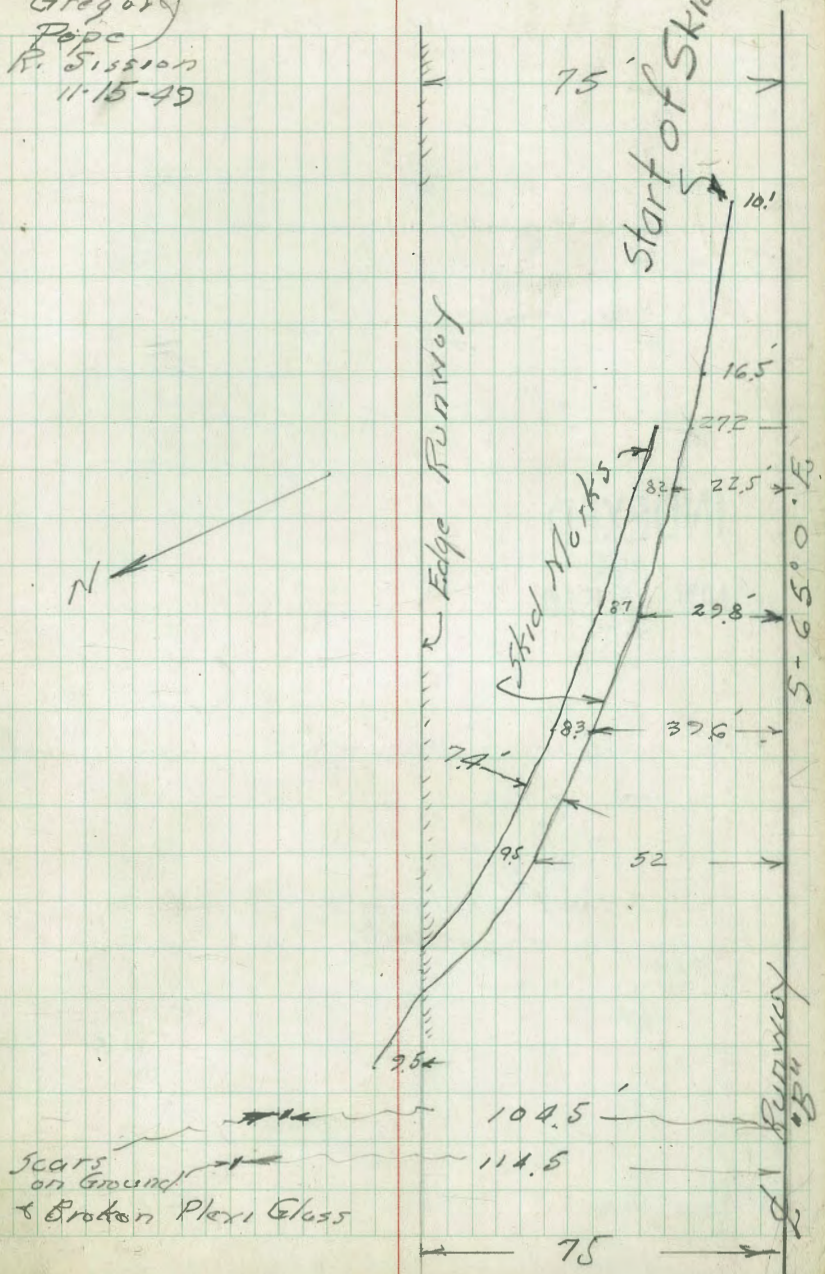 Gregory
Pope
R. Sission
11-15-49
75'
Start of Skid
10.1
16.5'
27.2
8.2 22.5'
Edge Runway
N
8.7 29.8'
S-65°0'E
Skid Marks
8.3 39.6'
7.4'
9.5 52
9.5
104.5'
114.5
Scars
on Ground
& Broken Plexi Glass
Runway
"B"
75